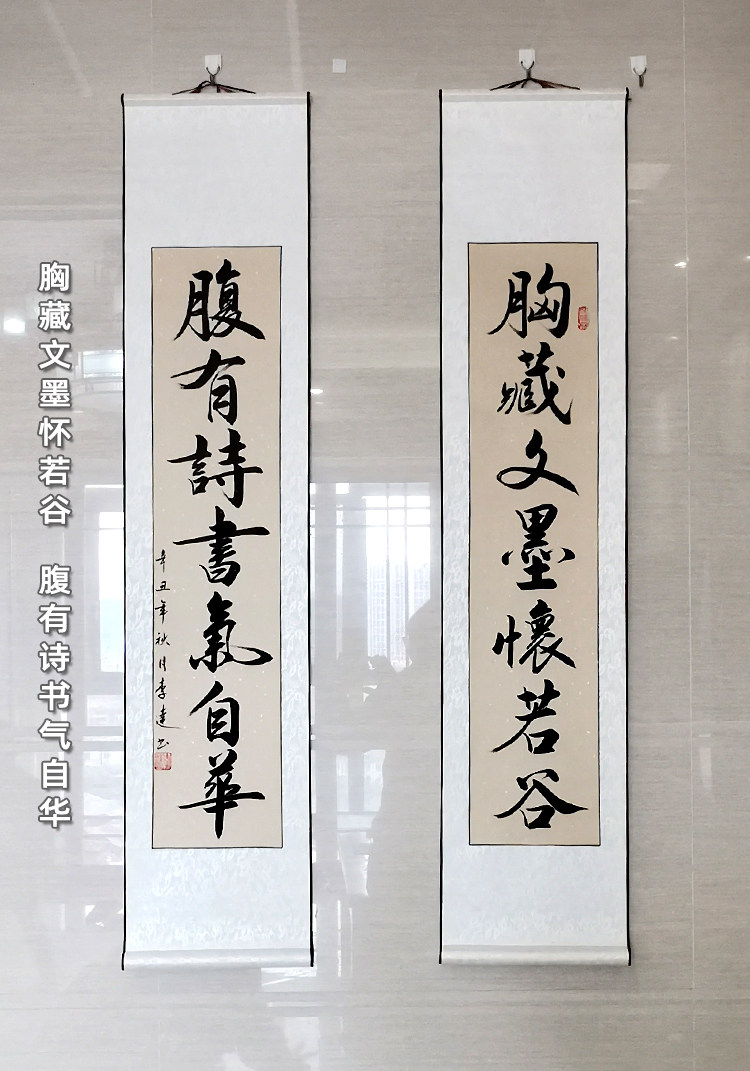 胸藏文墨懷若谷
腹有詩書氣自華
辛丑年秋月李達书
胸藏文墨怀若谷 腹有诗书气自华